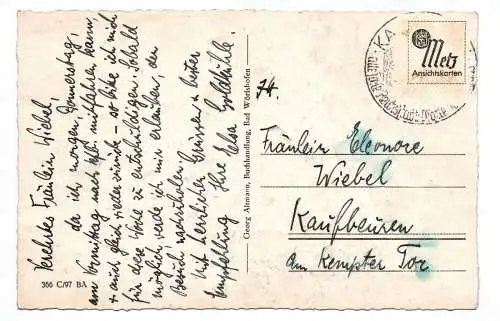 Verehrtes Fräulein Wiebel,
da ich morgen, Donnerstag,
am Vormittag nach mitfahren kann,
+ auch gleich wieder zurück – so bitte ich mich
für diese Woche zu entschuldigen. Sobald
möglich werde ich mir erlauben, den
Besuch nachzuholen.
Mit herzlichen Grüssen + bester
Empfehlung Ihre
366 C/97 BA
Georg Altmann, Buchhandlung, Bad Wörishofen
74.
Metz
Ansichtskarten
Fräulein Eleonore
Wiebel
Kaufbeuren
am Kempter Tor